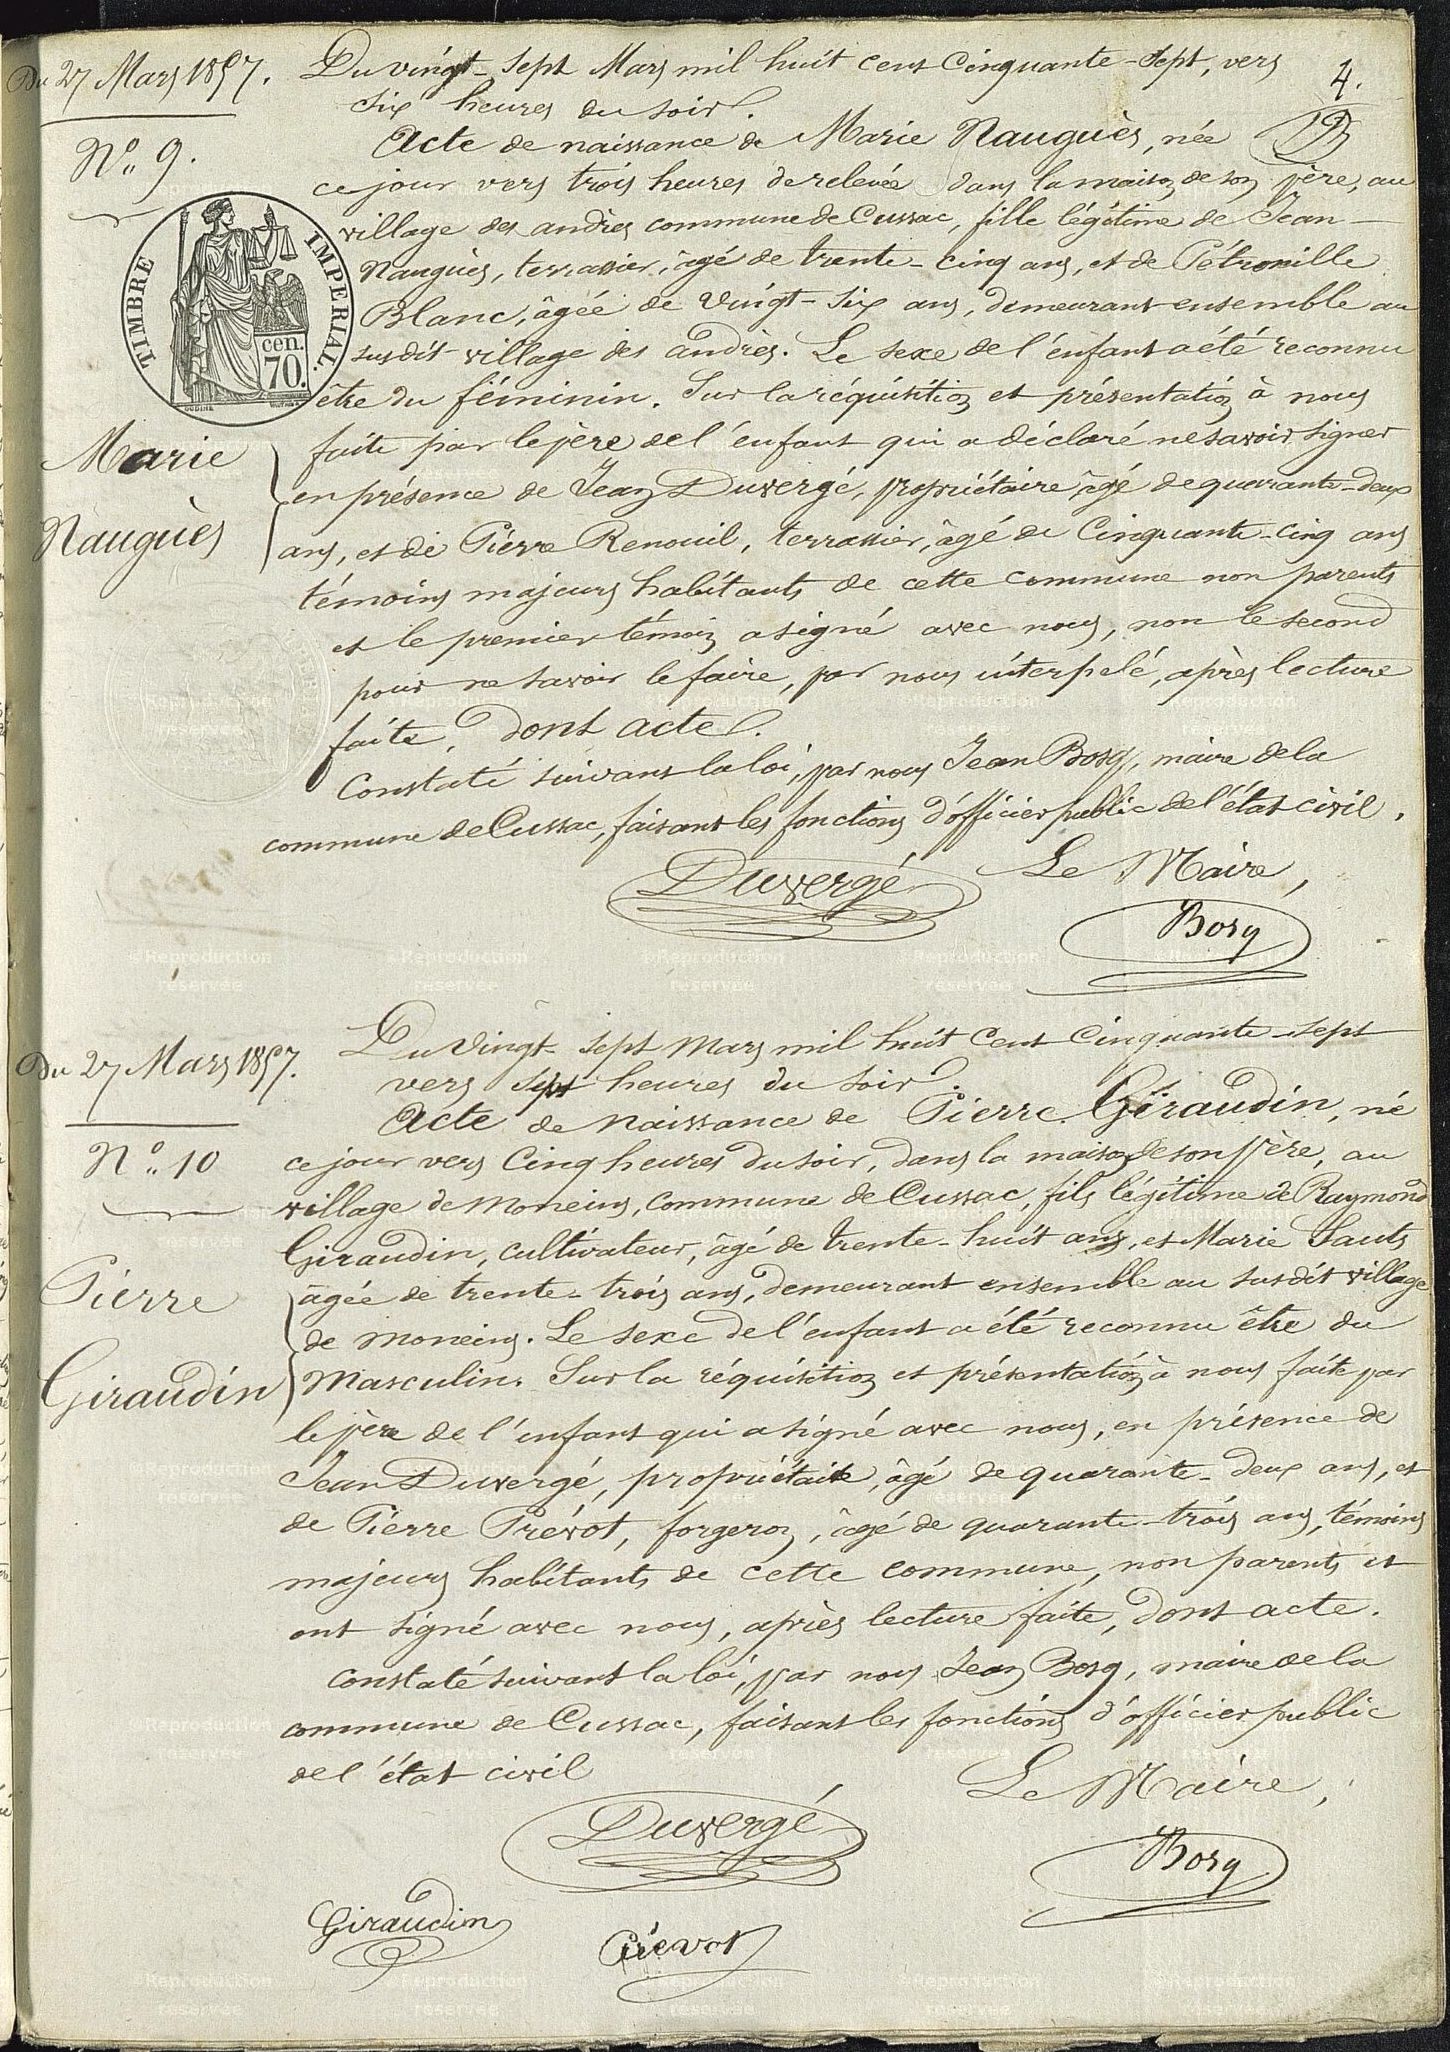 Du 27 Mars 1857.
Nº 9.
TIMBRE IMPERIAL.
cen.
70.
Marie
Nauguès
4.
Du vingt-sept Mars mil huit cent Cinquante-sept, vers
six heures du soir.
Acte de naissance de Marie Nauguès, née
ce jour vers trois heures de relevée dans la maison de son père, au
village des andrès commune de Cussac, fille légitime de Jean
Nauguès, terrassier, âgé de trente-cinq ans, et de Pétronille
Blanc, âgée de vingt-six ans, demeurant ensemble au
susdit village des andrès. Le sexe de l'enfant a été reconnu
être du féminin. Sur la réquisition et présentation à nous
faite par le père de l'enfant qui a déclaré ne savoir signer
en présence de Jean Duvergé, propriétaire, âgé de quarante-deux
ans, et de Pierre Renouil, terrassier, âgé de Cinquante-cinq ans
témoins majeurs habitants de cette commune non parents
et le premier témoin a signé avec nous, non le second
pour ne savoir le faire, par nous interpelé, après lecture
faite, dont acte.
Constaté suivant la loi, par nous Jean Bosq, maire de la
commune de Cussac, faisant les fonctions d'officier public de l'état civil.
Duvergé Le Maire,
Bosq
Du 27 Mars 1857.
Nº 10
Pierre
Giraudin
Du Vingt-sept Mars mil huit Cent Cinquante-sept
vers sept heures du soir.
Acte de Naissance de Pierre Giraudin, né
ce jour vers Cinq heures du soir, dans la maison de son père, au
village de Moneins, commune de Cussac, fils légitime de Raymond
Giraudin, cultivateur, âgé de trente-huit ans, et Marie Sauts
âgée de trente-trois ans, demeurant ensemble au susdit village
de Moneins. Le sexe de l'enfant a été reconnu être du
Masculin. Sur la réquisition et présentation à nous faite par
le père de l'enfant qui a signé avec nous, en présence de
Jean Duvergé, propriétaire, âgé de quarante-deux ans, et
de Pierre Prévot, forgeron, âgé de quarante-trois ans, témoins
majeurs habitants de cette commune, non parents et
ont signé avec nous, après lecture faite, dont acte.
Constaté suivant la loi, par nous Jean Bosq, maire de la
commune de Cussac, faisant les fonctions d'officier public
de l'état civil
Le Maire,
Duvergé
Bosq
Giraudin
Prévot